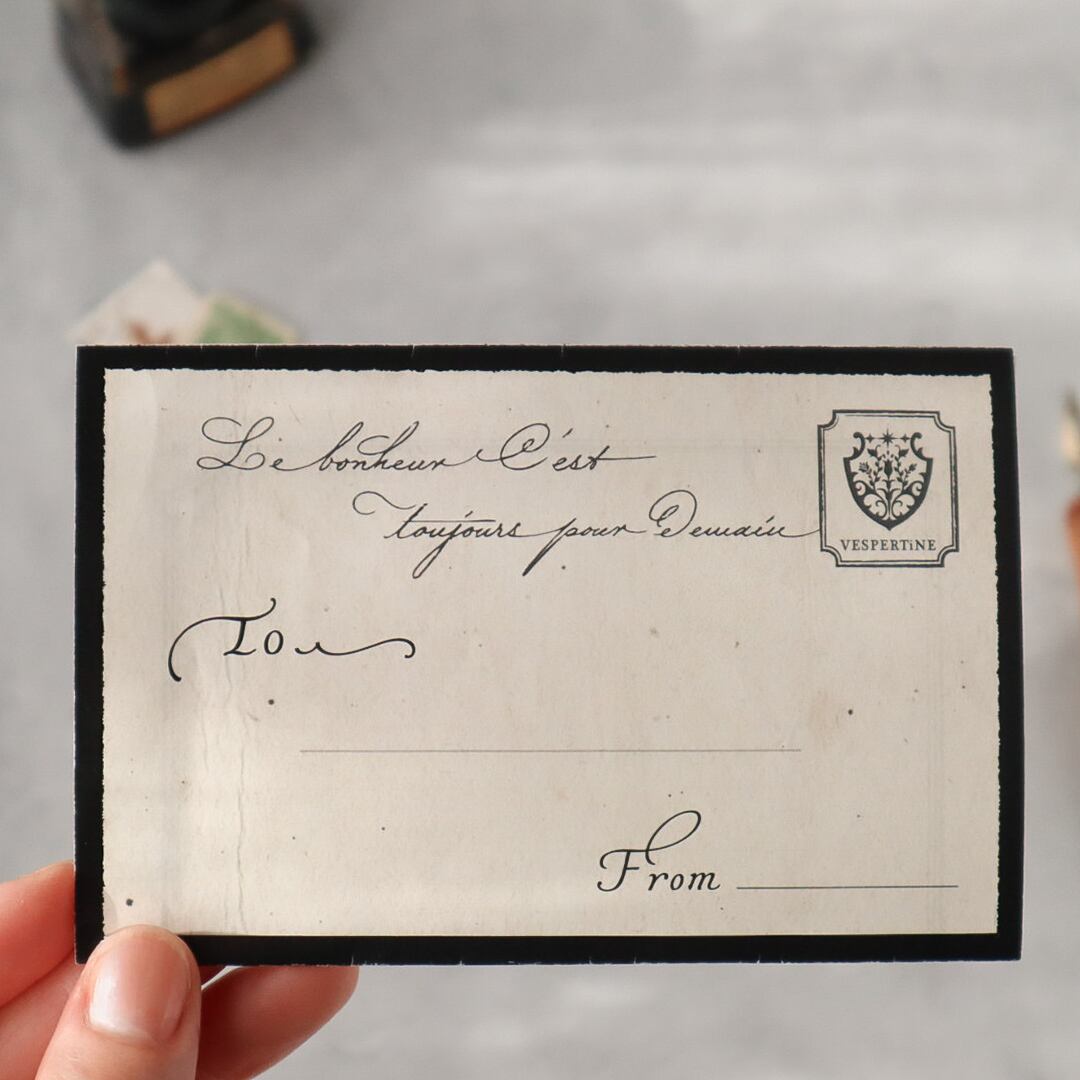 Le bonheur C'est
toujours pour Demain
VESPERTiNE
To
From